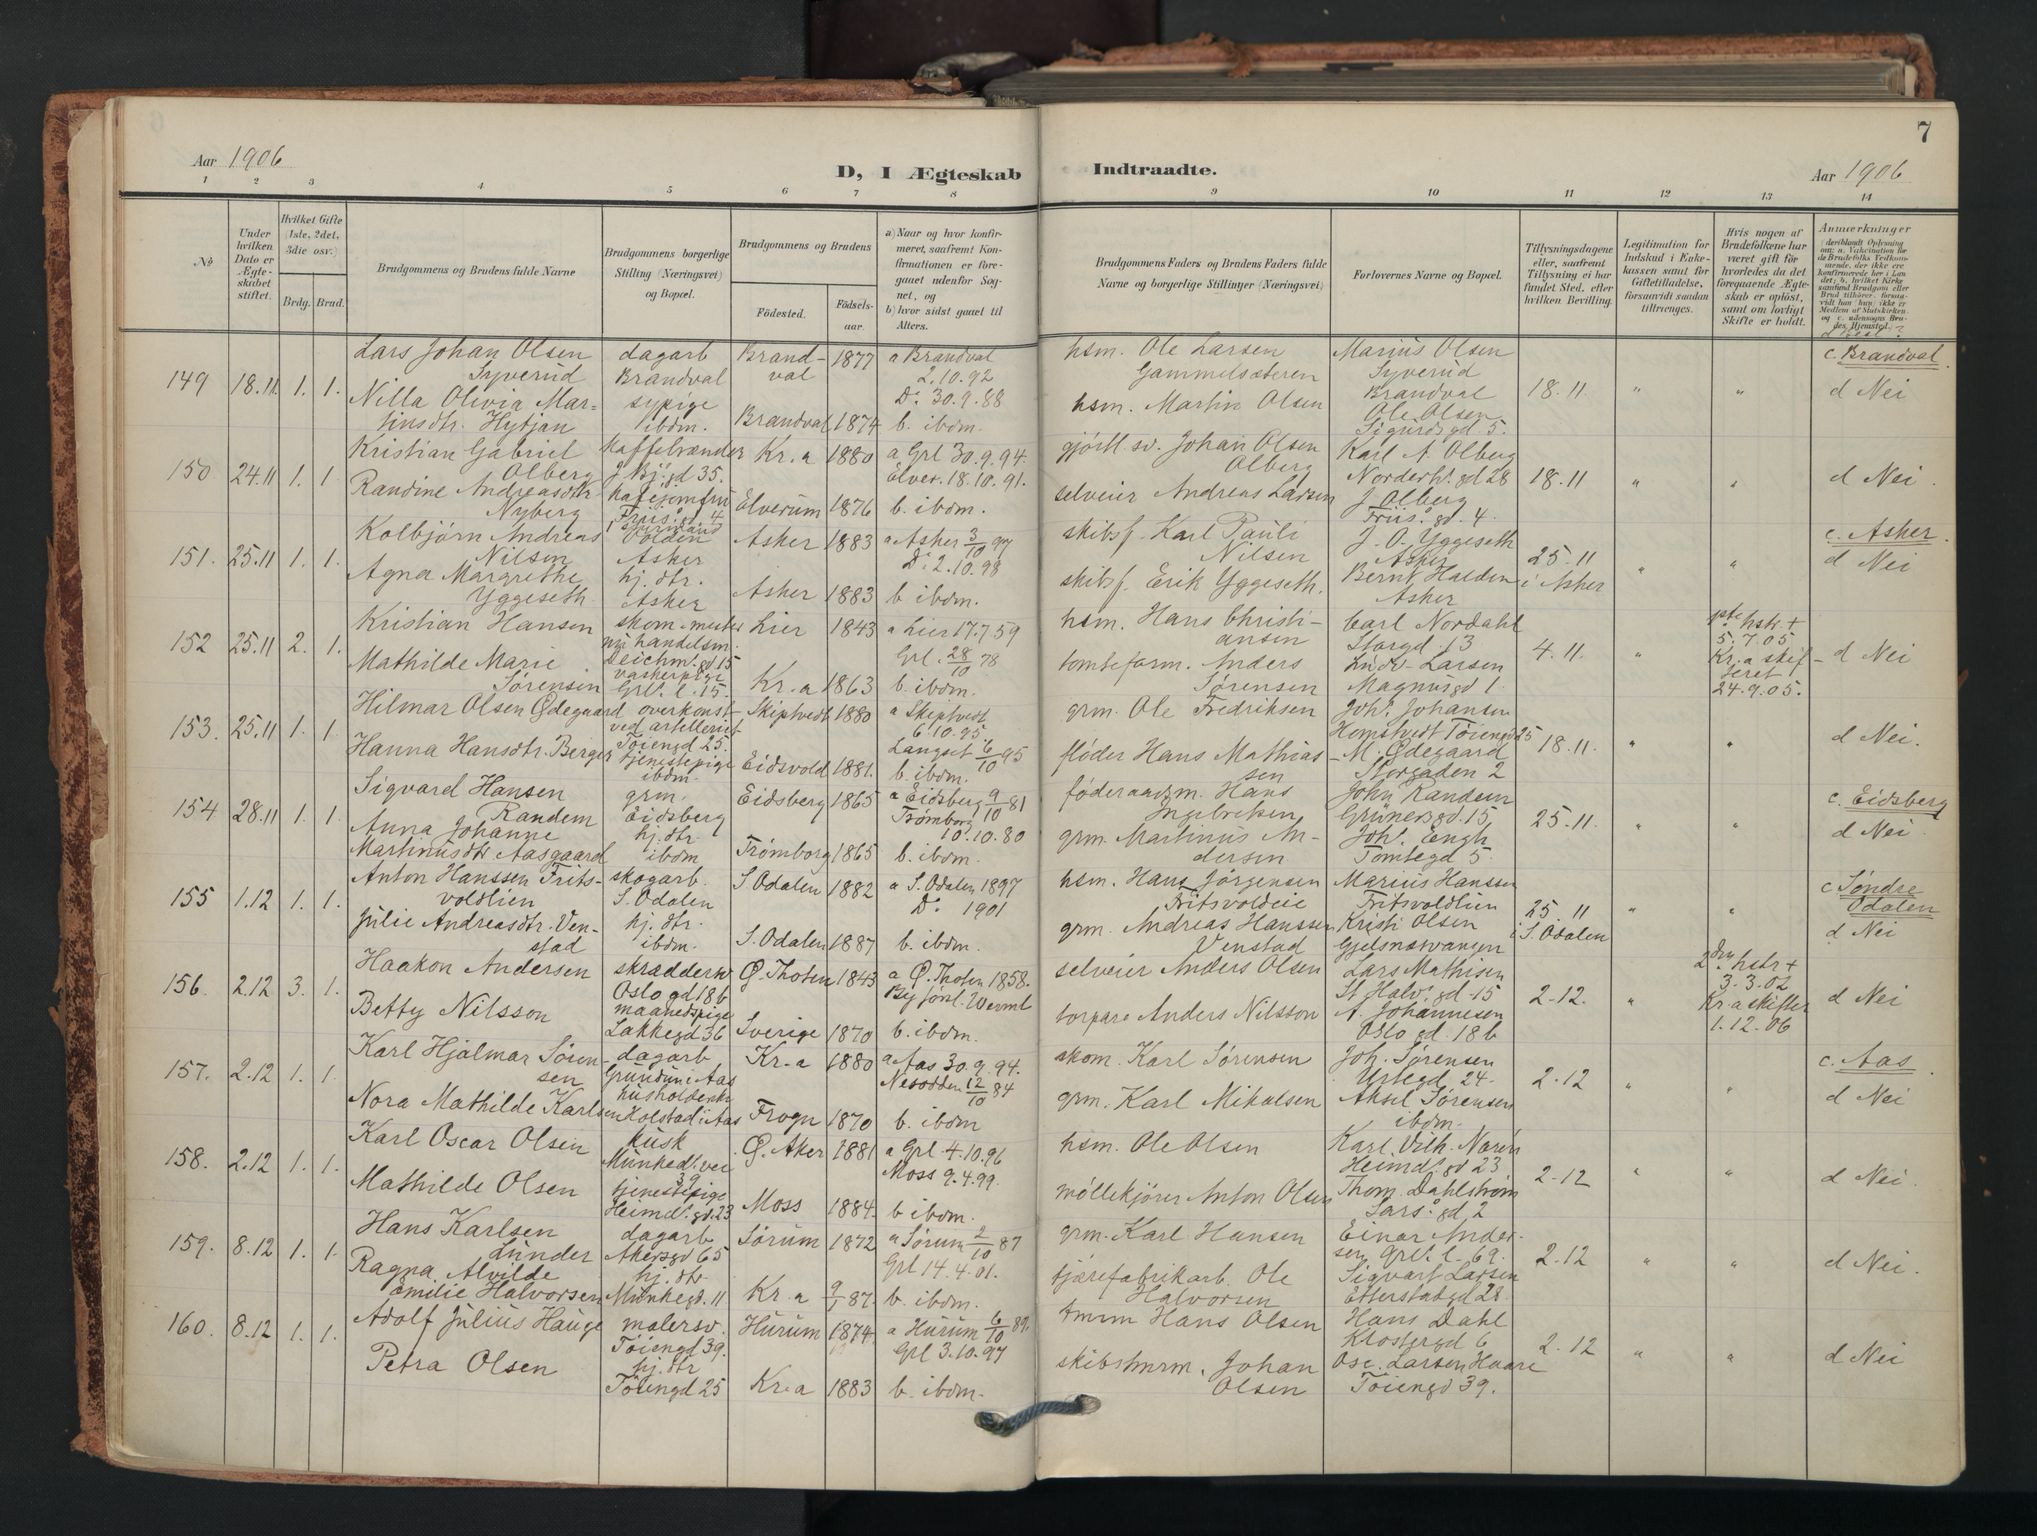 7
Aar 1906
D, I Ægteskab Indtraadte.
Aar 1906
1 2 3 4 5 6 7 8 9 10 11 12 13 14
No
Under hvilken Dato er Ægteskabet stiftet.
Hvilket Gifte (1ste, 2det, 3die osv.)
Brdg. Brud.
Brudgommens og Brudens fulde Navne
Brudgommens borgerlige Stilling (Næringsvei) og Bopæl.
Brudgommens og Brudens
Fødested. Fødsels-aar.
a) Naar og hvor konfirmeret, saafremt Konfirmationen er foregaaet udenfor Sognet, og
b) hvor sidst gaaet til Alters.
Brudgommens Faders og Brudens Faders fulde Navne og borgerlige Stillinger (Næringsvei)
Forlovernes Navne og Bopæl.
Tillysningsdagene eller, saafremt Tillysning ei har fundet Sted, efter hvilken Bevilling.
Legitimation for Indskud i Enkekassen samt for Giftetilladelse, forsaavidt saadan tiltrænges.
Hvis nogen af Brudefolkene har været gift før hvorledes da det foregaaende Ægteskab er opløst, samt om lovligt Skifte er holdt.
Anmærkninger
149 18.11 1. 1.
Lars Johan Olsen Syverud dagarb Brandval Brandval 1877 a Brandval 2.10.92
hsm. Ole Larsen Gammelsæteren Marius Olsen Syverud Brandval 18.11 " " c. Brandval
Nilla Olivia Martinsdtr. Hytjan sypige ibdm. Brandval 1874 Do 30.9.88 b. ibdm.
hsm. Martin Olsen Ole Olsen Sigurdsgd. 5. d Nei
150 24.11 1. 1.
Kristian Gabriel Olberg Kaffebrænder Kr.a 1880 a Grl 30.9.94.
Johan Olsen Olberg Karl A. Olberg Norderh. gd 28 18.11 " "
Randine Andreasdtr. Nyberg Elverum 1876 Elver. 18.10.91. b. ibdm.
selveier Andreas Larsen J. Olberg Friis. gd. 4. d Nei.
151. 25.11 1. 1.
Kolbjørn Andreas Nilsen Asker Asker 1883 a Asker 3/10 97
skibsf. Karl Pauli Nilsen J. O. Yggeseth Asker 25.11 i Asker " " c. Asker
Agna Margrethe Yggeseth hj. dtr. Asker Asker 1883 Do 2.10.98 b ibdm.
skibsf. Erik Yggeseth Bernt Halden Asker d Nei
152 25.11 2. 1.
Kristian Hansen skom.mester Deichm. gd. 15 Lier 1843 a Lier 17.7.59
hsm. Hans Christiansen Carl Nordahl Storgd 13 4.11. " 1ste hstr. + 5.7.05 Kr.a skifteret 24.9.05.
Mathilde Marie Sørensen vaskerpige Grl. l. 15. Kr.a 1863 Grl. 28/10 78 b. ibdm.
tomteform. Anders Sørensen Larsen Magnusgd 1. d Nei
153. 25.11 1. 1.
Hilmar Olsen Ødegaard overkonst. ved artilleriet Tøiengd 25. Skiptvedt 1880 a Skiptvedt 6.10.95
grm. Ole Fredriksen Joh. Johansen Homstvedt Tøiengd 25 18.11. " "
Hanna Hansdtr. Berger tjenestepige ibdm. Eidsvold 1881. Langset 6/10 95 b. ibdm.
fløder Hans Mathiassen M. Ødegaard Storgaden 2 d Nei.
154 28.11 1. 1.
Sigvard Hansen Randem grm. Eidsberg Eidsberg 1865 a Eidsberg 9/10 81
føderaadsm. Hans Ingebretsen John Randem Grünersgd. 15 25.11. " " c. Eidsberg
Anna Johanne Martinusdtr Aasgaard hj. dtr. ibdm Trømborg 1865 Trømborg 10.10.80 b. ibdm.
grm. Martinus Andersen Joh. Engh Tomtegd 5. d Nei.
155 1.12 1. 1.
Anton Hanssen Fritsvoldlien skogarb. S. Odalen S. Odalen 1882 a S. Odalen 1897
hsm. Hans Jørgensen Fritsvoldeie Marius Hanssen Fritsvoldlien 25.11 i S. Odalen " " c Søndre Odalen
Julie Andreasdtr. Venstad hj. dtr. ibdm. S. Odalen 1887 Do 1901 b. ibdm.
grm. Andreas Hanssen Venstad Kristi Olsen Gjelsnæsvangen d Nei
156. 2.12 3. 1.
Haakon Andersen skræddersv Oslo gd 18b Ø. Thoten 1843 a Ø. Thoten 1858.
selveier Anders Olsen Lars Mathisen St. Halv. gd 15 2.12. " 2den hstr + 3.3.02 Kr.a skifter 1.12.06
Betty Nilsson maanedspige Lakkegd 36 Sverige 1870 b. ibdm.
torpare Anders Nilsson A. Johannesen Oslo gd. 18b d Nei
157. 2.12 1. 1.
Karl Hjalmar Sørensen dagarb. Kr.a 1880 a Aas 30.9.94.
skom. Karl Sørensen Joh. Sørensen Urtegd 24. 2.12 " " c. Aas
Nora Mathilde Karlsen Holstad i Aas Frogn 1870 Nesodden 12/10 84 b. ibdm
grm. Karl Mikalsen Aksel Sørensen ibdm. d Nei
158. 2.12 1. 1.
Karl Oscar Olsen kusk Munked. vei 39 Ø. Aker 1881 a Grl 4.10.96
hsm. Ole Olsen Karl Vilh. Noren Heimd. gd 23 2.12 " "
Mathilde Olsen tjenestepige Heimd. gd. 23 Moss 1884. Moss 9.4.99. b ibdm.
møllekjører Anton Olsen Thom. Dahlstrøm Lars. gd 2 d Nei.
159. 8.12 1. 1.
Hans Karlsen Lunder dagarb Akersgd 65 Sørum 1872 a Sørum 2/10 87
grm. Karl Hansen Einar Andersen Grl. l. 69. 2.12 " "
Ragna Alvilde Emilie Halvorsen hj. dtr Munkegd. 11 Kr.a 9/1 87. Grl 14.4.01. b. ibdm.
tjærefabrikarb. Ole Halvorsen Sigvart Larsen Etterstadgd 28. d Nei.
160. 8.12 1. 1.
Adolf Julius Hauge malersv. Tøiengd 39. Hurum 1874. a Hurum 6/10 89.
tmrm Hans Olsen Hans Dahl Klostergd 6 2.12 " "
Petra Olsen hj. dtr Tøiengd 25 Kr.a 1883 Grl 3.10.97 b. ibdm.
skibstmrm. Johan Olsen Osc. Larsen Haare Tøiengd 39. d Nei